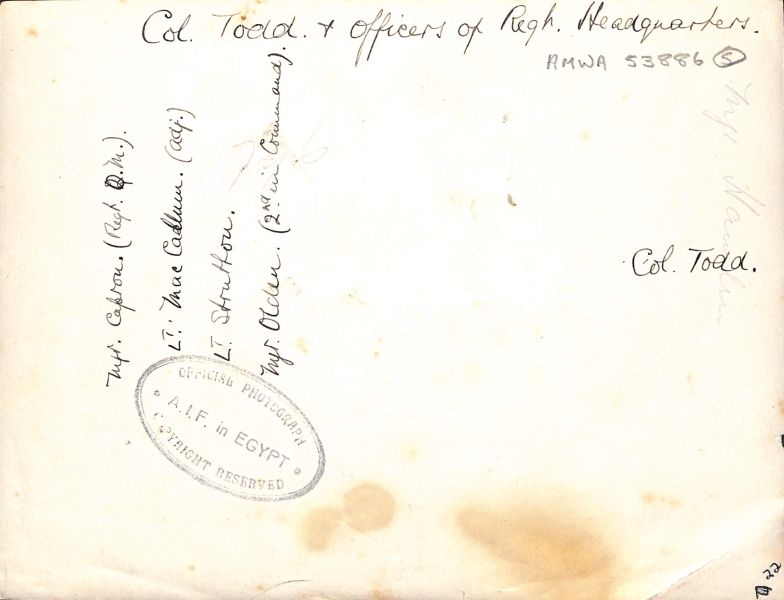 Col. Todd. + Officers of Regt. Headquarters.
AMWA 53886 5
Mjr. Capron. (Regt. Q.M.).
Lt. Mac Callum. (adj.)
Lt Strutton.
Mjr. Olden. (2nd in Command).
Col. Todd.
OFFICIAL PHOTOGRAPH
A.I.F. in EGYPT
COPYRIGHT RESERVED
22